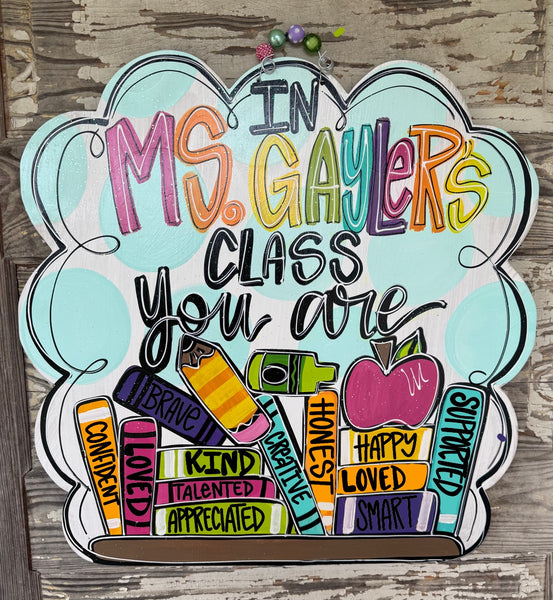 IN
MS. GAYLER'S
CLASS
you are
CONFIDENT
LOVED!
BRAVE
KIND
TALENTED
APPRECIATED
CREATIVE
HONEST
HAPPY
LOVED
SMART
SUPPORTED